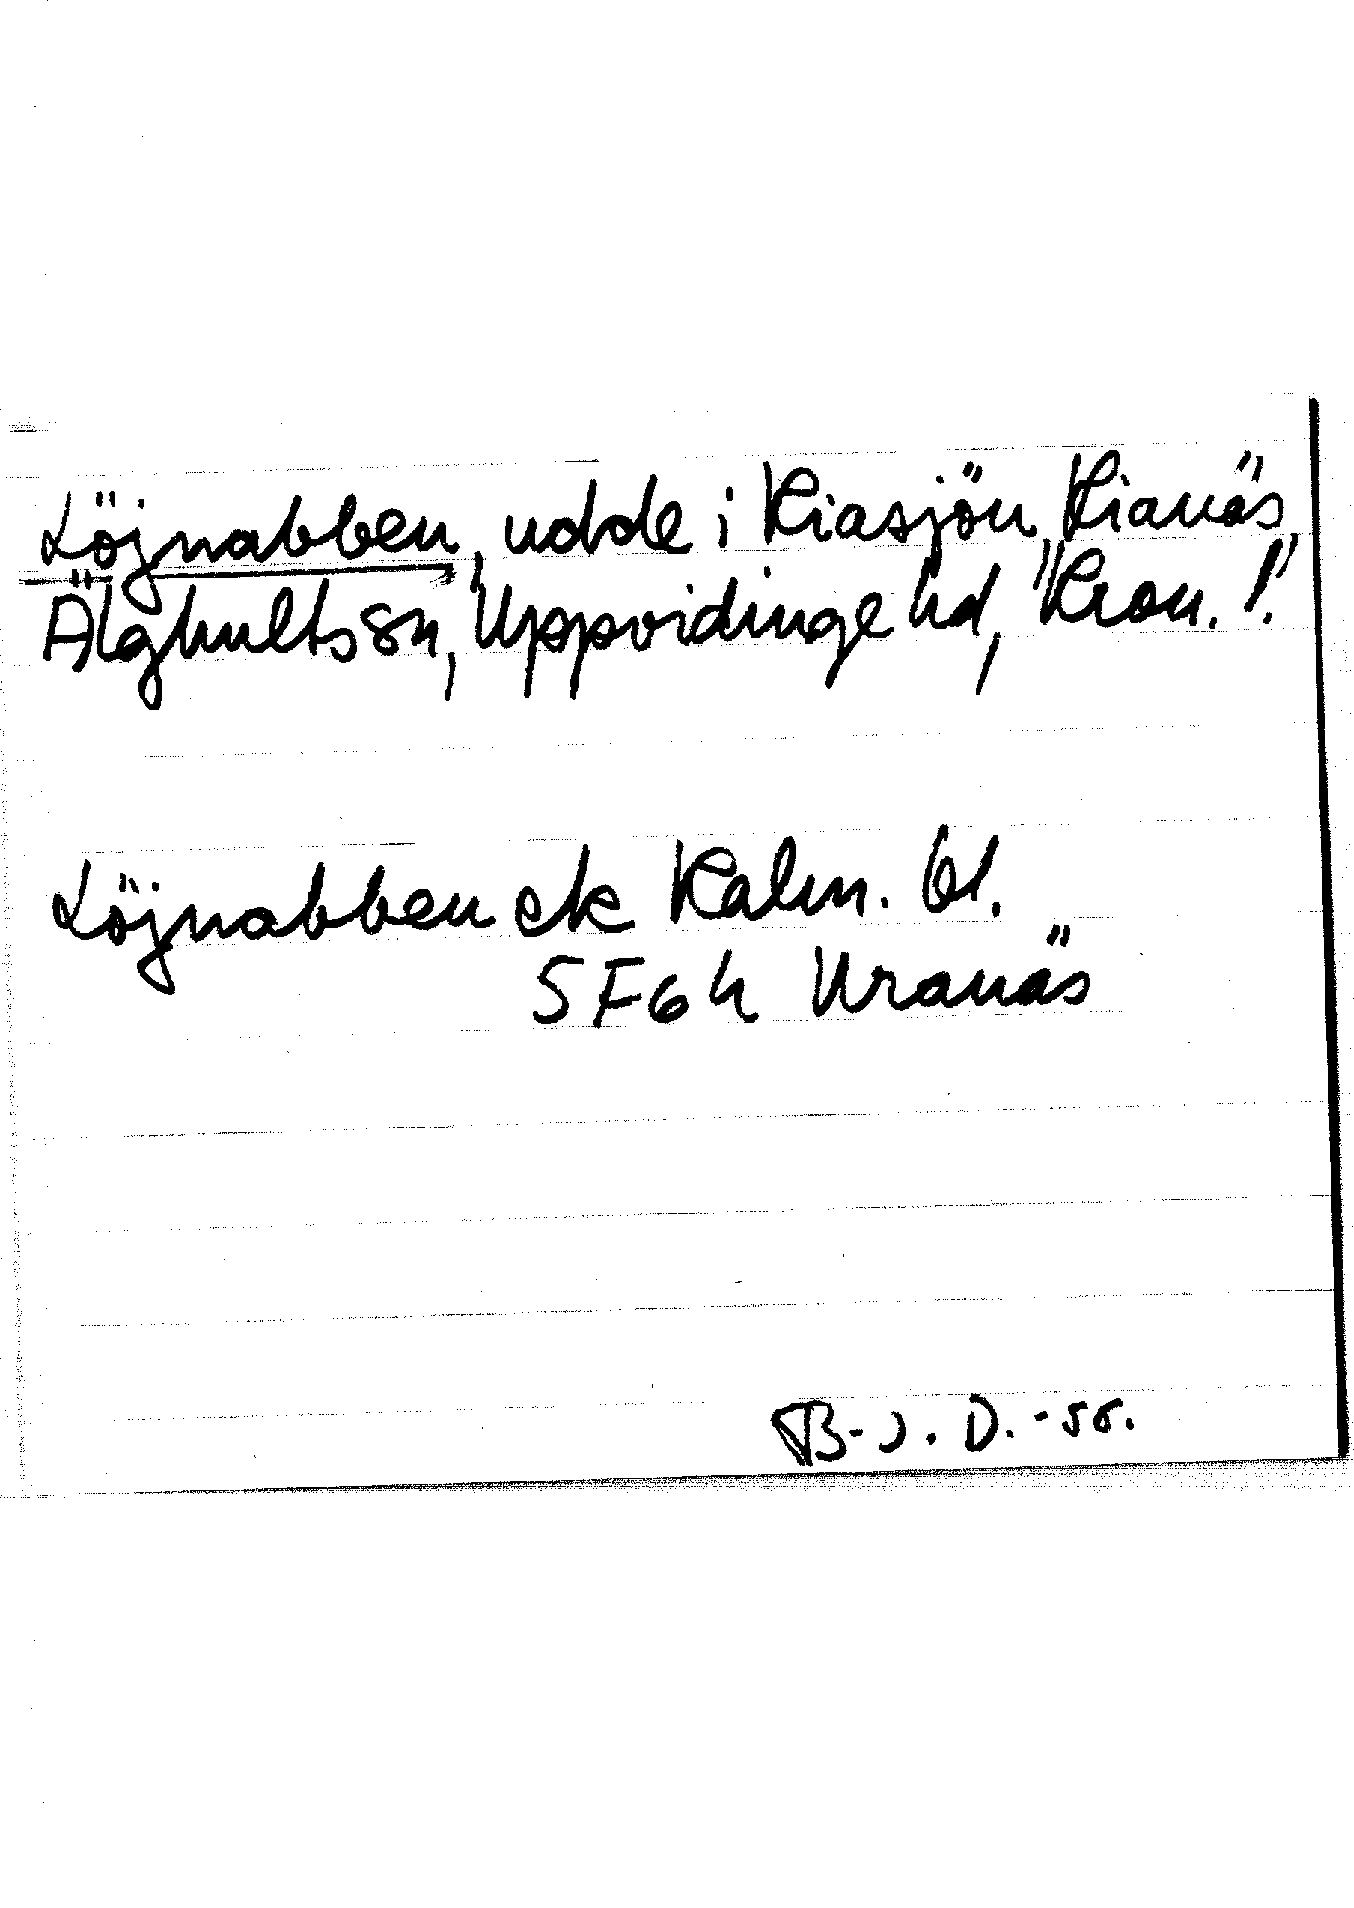 Löjnabben, udde i Kiasjön, Kianäs,
Älghults sn, Uppvidinge hd, Kron. l.
Löjnabben ek Kalm. bl.
5F6h Uranäs
B-J. D. -56.